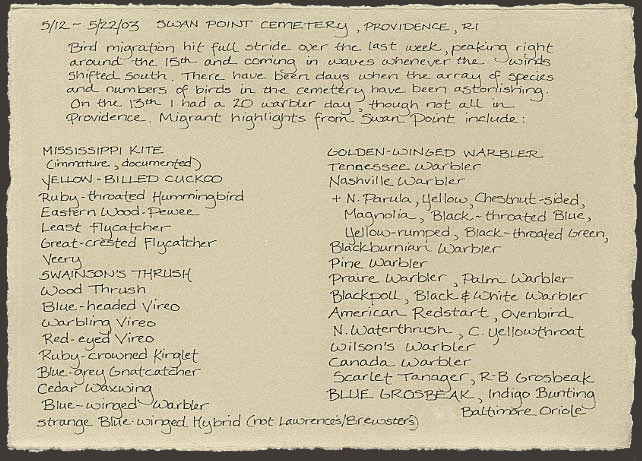 5/12 - 5/22/03 SWAN POINT CEMETERY, PROVIDENCE, RI
Bird migration hit full stride over the last week, peaking right
around the 15th and coming in waves whenever the winds
shifted south. There have been days when the array of species
and numbers of birds in the cemetery have been astonishing.
On the 13th I had a 20 warbler day, though not all in
Providence. Migrant highlights from Swan Point include:
MISSISSIPPI KITE
(immature, documented)
YELLOW-BILLED CUCKOO
Ruby-throated Hummingbird
Eastern Wood-Pewee
Least flycatcher
Great-crested Flycatcher
Veery
SWAINSON'S THRUSH
Wood Thrush
Blue-headed Vireo
Warbling Vireo
Red-eyed Vireo
Ruby-crowned Kinglet
Blue-grey Gnatcatcher
Cedar Waxwing
Blue-winged Warbler
strange Blue-winged Hybrid (not Lawrence's/Brewster's)
GOLDEN-WINGED WARBLER
Tennessee Warbler
Nashville Warbler
+ N. Parula, Yellow, Chestnut-sided,
Magnolia, Black-throated Blue,
Yellow-rumped, Black-throated Green,
Blackburnian Warbler
Pine Warbler
Praire Warbler, Palm Warbler
Blackpoll, Black & White Warbler
American Redstart, Ovenbird
N. Waterthrush, C. Yellowthroat
Wilson's Warbler
Canada Warbler
Scarlet Tanager, R-B Grosbeak
BLUE GROSBEAK, Indigo Bunting
Baltimore Oriole